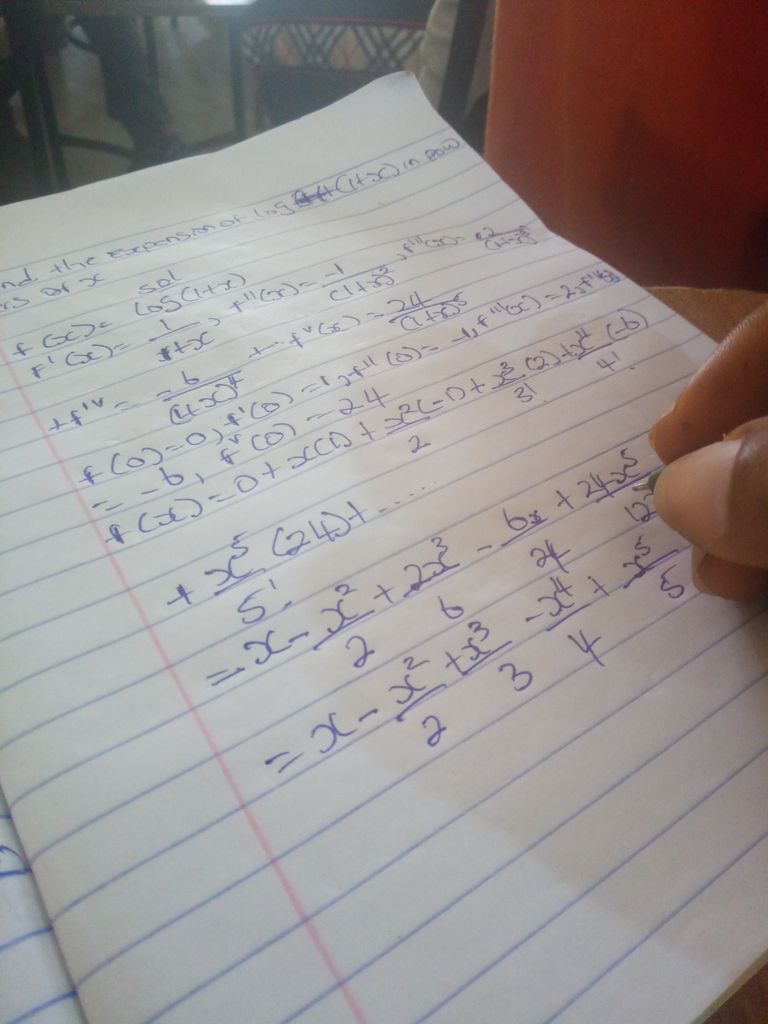 nd the expansion of log (1+x) in pow
rs of x
sol
f(x) = log(1+x)
f'(x) = 1/1+x, f''(x) = -1/(1+x)², f'''(x) = 2/(1+x)³
+f'ᵛ = -6/(1+x)⁴ + ... fᵛ(x) = 24/(1+x)⁵
f(0) = 0, f'(0) = 1, f''(0) = -1, f'''(x) = 2, f'ᵛ(x)
= -6, fᵛ(0) = 24
f(x) = 0 + x(1) + x²/2(-1) + x³/3!(2) + x⁴/4!(-6)
+ x⁵/5!(24) + ......
= x - x²/2 + 2x³/6 - 6x/24 + 24x⁵/12
= x - x²/2 + x³/3 - x⁴/4 + x⁵/5